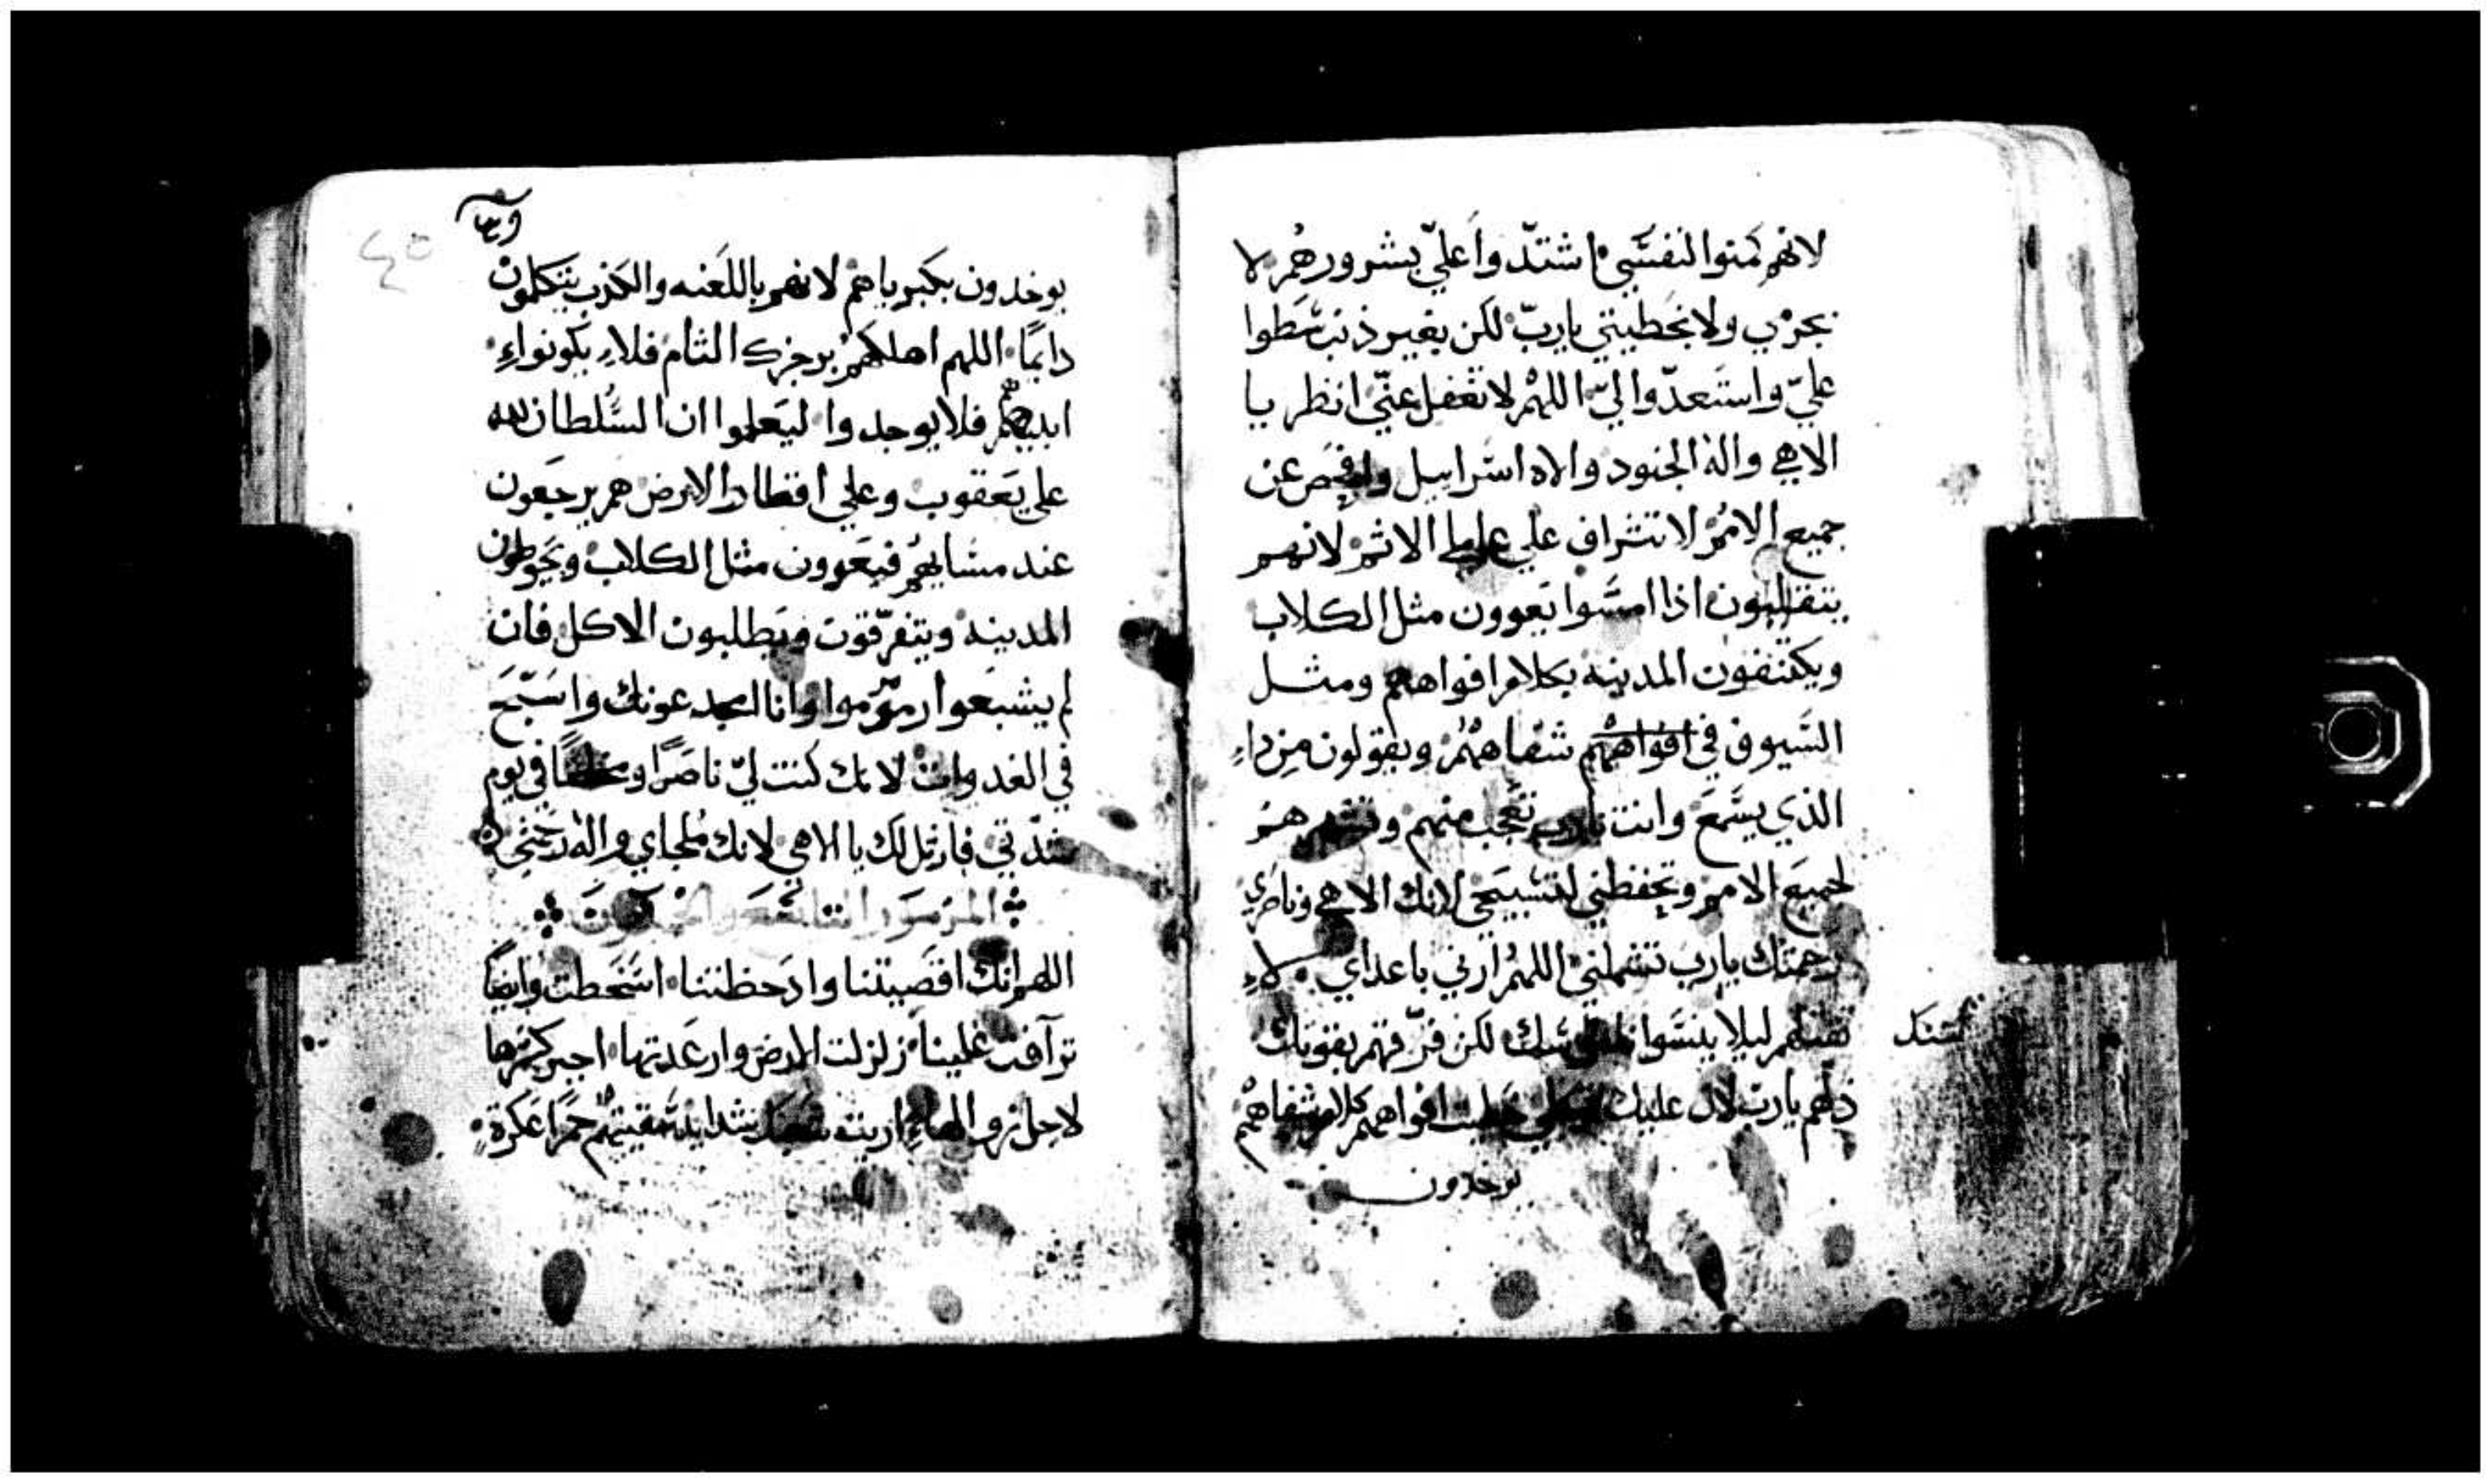 لانهم كمنوا لنفسي اشتدّوا عليّ بشرورهم لا
بجرمي ولا بخطيتي يا ربّ لكن بغير ذنب سَطوا
عليّ واستعدّوا ليّ اللهم لا تغفل عنّي انظر يا
الاهي واله الجنود والاه اسراييل وافحص عن
جميع الامم لا تتراف علي عاملي الاثم لانهم
ينقلبون اذا امسوا يعوون مثل الكلاب
ويكتنفون المدينه بكلام افواههم ومثل
السيوف في افواههم شفاههم ويقولون من داء
الذي يسمع وانت يا رب تعجب منهم وتنتهرهم
لجميع الامم وتحفظني لتسبيحي لانك الاهي وناصري
رحمتك يا رب تشملني اللهم ارني باعداي لاء
تقتلهم ليلا ينسوا لكن فرّقهم بقوتك
ذلهم يا رب لان عليك افواههم كلام شفاههم
يوخدون
٤٥
يوخدون بكبرياهم لانهم باللعنه والكذب يتكلمون
دايمًا اللهم اهلكهم برجزك التام فلاء يكونواء
ابديهم فلا يوجدوا ليعلموا ان السلطان لله
علي يعقوب وعلي اقطار الارض هم يرجعون
عند مسايهم فيعوون مثل الكلاب ويحوطون
المدينه ويتفرّقون ويطلبون الاكل فان
لم يشبعوا رمرموا وانا امجد عونك واسبّح
في الغدوات لانك كنت ليّ ناصرًا وملجًا في يوم
شدّتي فارتل لك يا الاهي لانك ملجاي واله رحمتي
المزمور التاسع والخمسون
اللهم انك اقصيتنا وادحظتنا اسخطت وايضًا
تراّفت علينا زلزلت الارض وارعدتها اجبر كسرها
لاجل نزوالهاء اريت شعبك شدايد سقيتهم خمرًا عكرة